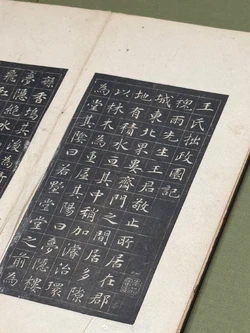 王氏拙政園記
槐雨先生王君敬止所居在郡
城東北界婁齊門之間居多隙
地有積水亙其中稍加濬治環
以林木為重屋其陽曰夢隱樓
為堂其陰曰若墅堂堂之前為
香塢其後為
夢隱絕水為
飛